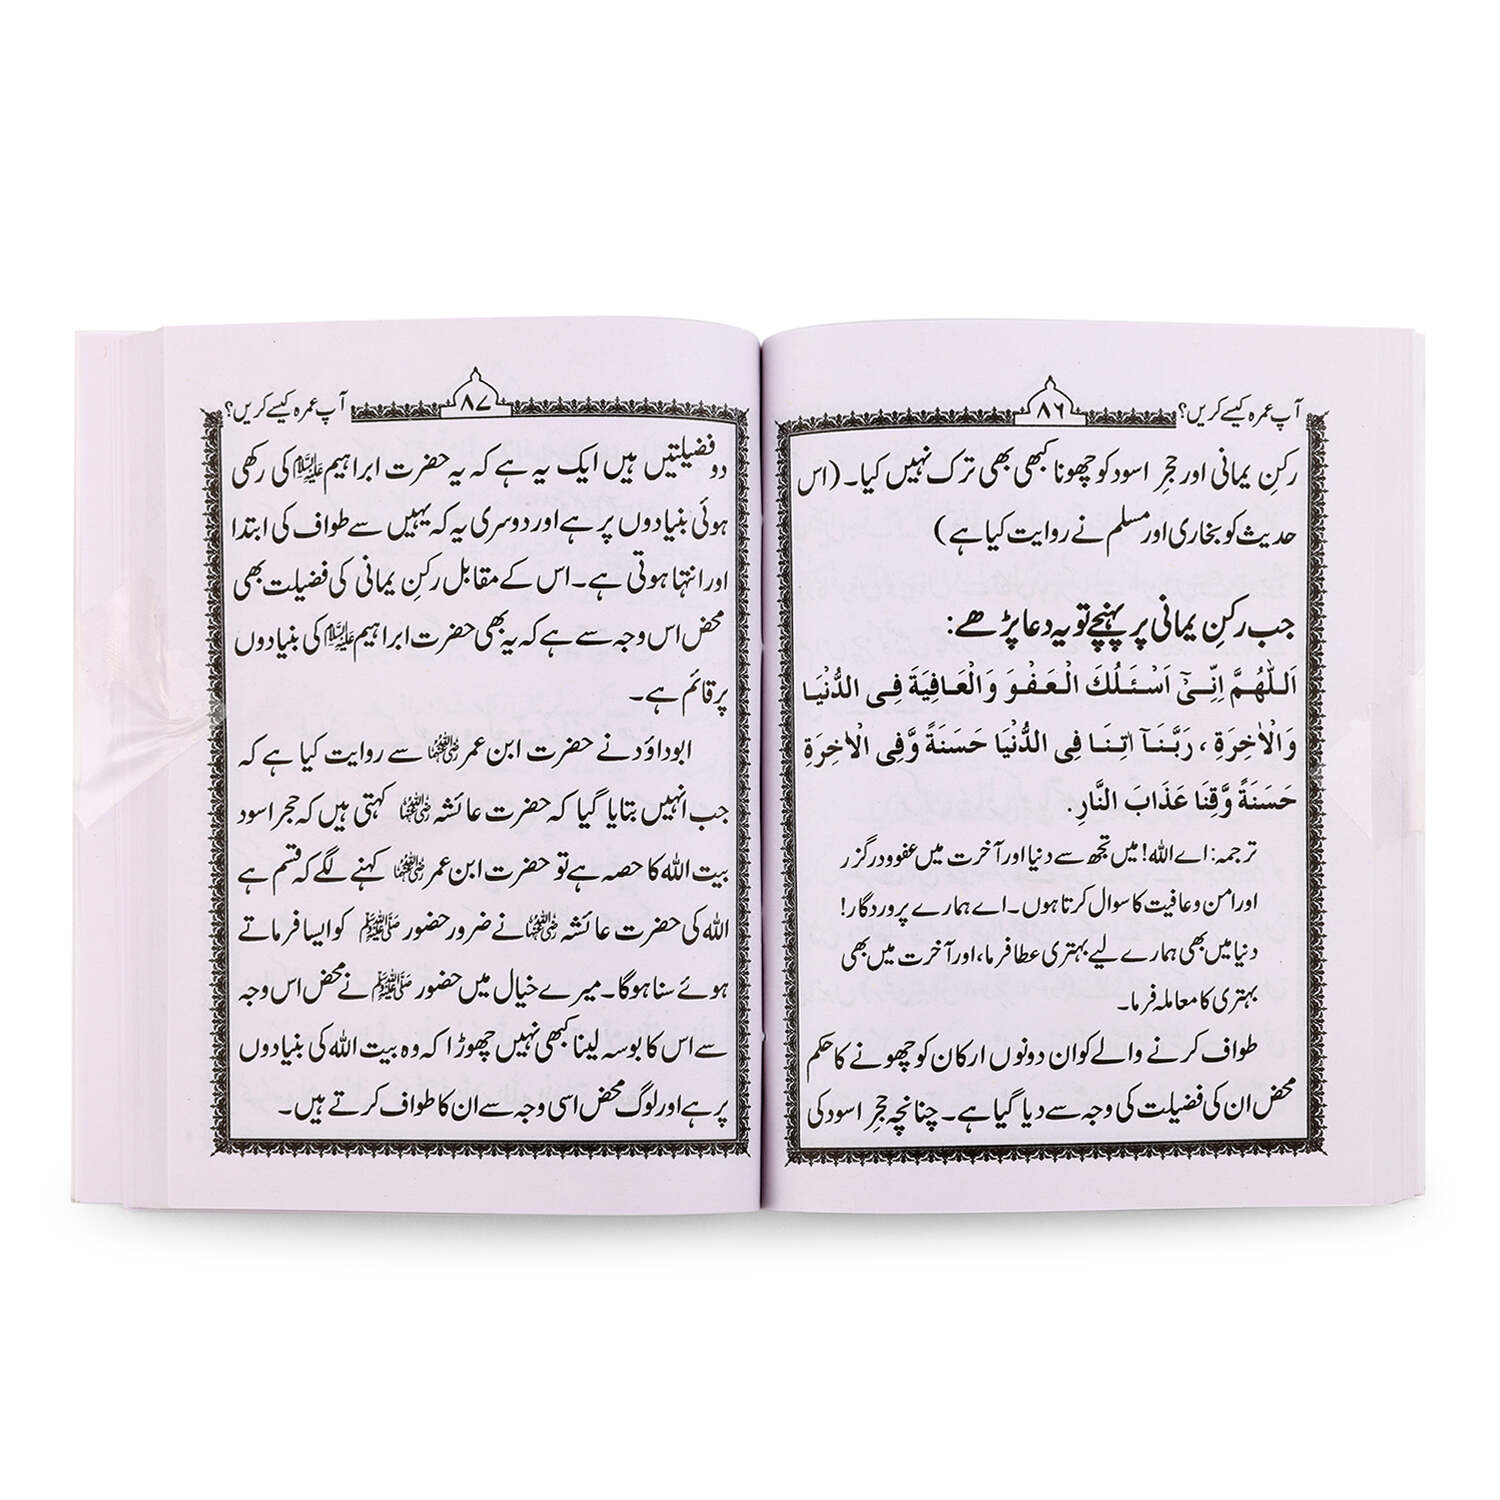 آپ عمرہ کیسے کریں؟
۸۶
رکنِ یمانی اور حجرِ اسود کو چھونا کبھی بھی ترک نہیں کیا۔ (اس
حدیث کو بخاری اور مسلم نے روایت کیا ہے)
جب رکنِ یمانی پر پہنچے تو یہ دعا پڑھے:
اَللّٰهُمَّ اِنِّیْۤ اَسْئَلُكَ الْعَفْوَ وَالْعَافِیَةَ فِی الدُّنْیَا
وَالْاٰخِرَةِ ، رَبَّنَاۤ اٰتِنَا فِی الدُّنْیَا حَسَنَةً وَّفِی الْاٰخِرَةِ
حَسَنَةً وَّقِنَا عَذَابَ النَّارِ.
ترجمہ: اے اللہ! میں تجھ سے دنیا اور آخرت میں عفو و درگزر
اور امن و عافیت کا سوال کرتا ہوں۔ اے ہمارے پروردگار!
دنیا میں بھی ہمارے لیے بہتری عطا فرما، اور آخرت میں بھی
بہتری کا معاملہ فرما۔
طواف کرنے والے کو ان دونوں ارکان کو چھونے کا حکم
محض ان کی فضیلت کی وجہ سے دیا گیا ہے۔ چنانچہ حجرِ اسود کی
آپ عمرہ کیسے کریں؟
۸۷
دو فضیلتیں ہیں ایک یہ ہے کہ یہ حضرت ابراہیم علیہ السلام کی رکھی
ہوئی بنیادوں پر ہے اور دوسری یہ کہ یہیں سے طواف کی ابتدا
اور انتہا ہوتی ہے۔ اس کے مقابل رکنِ یمانی کی فضیلت بھی
محض اس وجہ سے ہے کہ یہ بھی حضرت ابراہیم علیہ السلام کی بنیادوں
پر قائم ہے۔
ابوداؤد نے حضرت ابن عمر رضی اللہ عنہما سے روایت کیا ہے کہ
جب انہیں بتایا گیا کہ حضرت عائشہ رضی اللہ عنہا کہتی ہیں کہ حجر اسود
بیت اللہ کا حصہ ہے تو حضرت ابن عمر رضی اللہ عنہما کہنے لگے کہ قسم ہے
اللہ کی حضرت عائشہ رضی اللہ عنہا نے ضرور حضور ﷺ کو ایسا فرماتے
ہوئے سنا ہوگا۔ میرے خیال میں حضور ﷺ نے محض اس وجہ
سے اس کا بوسہ لینا کبھی نہیں چھوڑا کہ وہ بیت اللہ کی بنیادوں
پر ہے اور لوگ محض اسی وجہ سے ان کا طواف کرتے ہیں۔